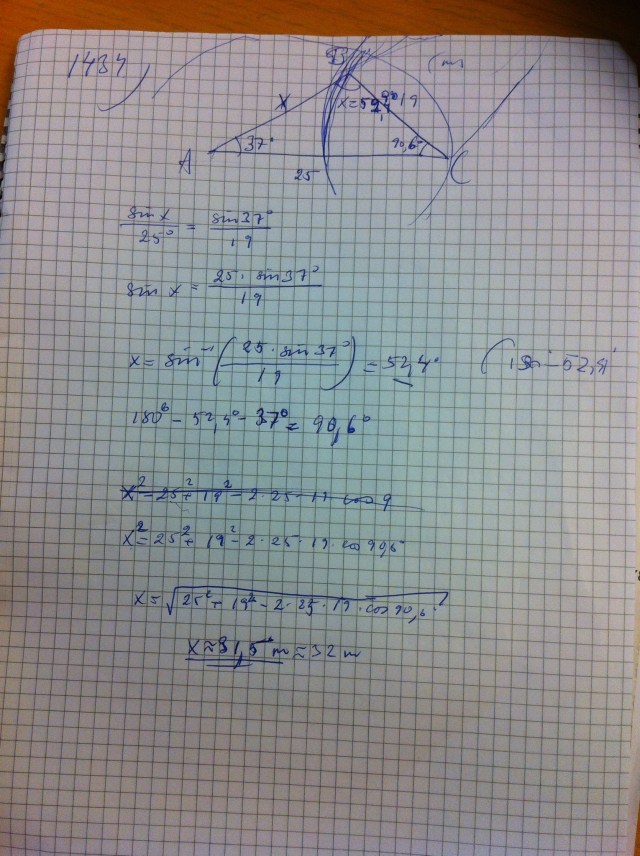 1434)
B
x
x = 52,4° 19
A
37°
90,6°
C
25
sin x / 25° = sin 37° / 19
sin x = 25 · sin 37° / 19
x = sin⁻¹ ( 25 · sin 37° / 19 ) = 52,4° (180° - 52,4°
180° - 52,4° - 37° = 90,6°
x² = 25² + 19² - 2 · 25 · 19 cos 9
x² = 25² + 19² - 2 · 25 · 19 · cos 90,6
x = √ 25² + 19² - 2 · 25 · 19 · cos 90,6°
x ≈ 31,5 m ≈ 32 m